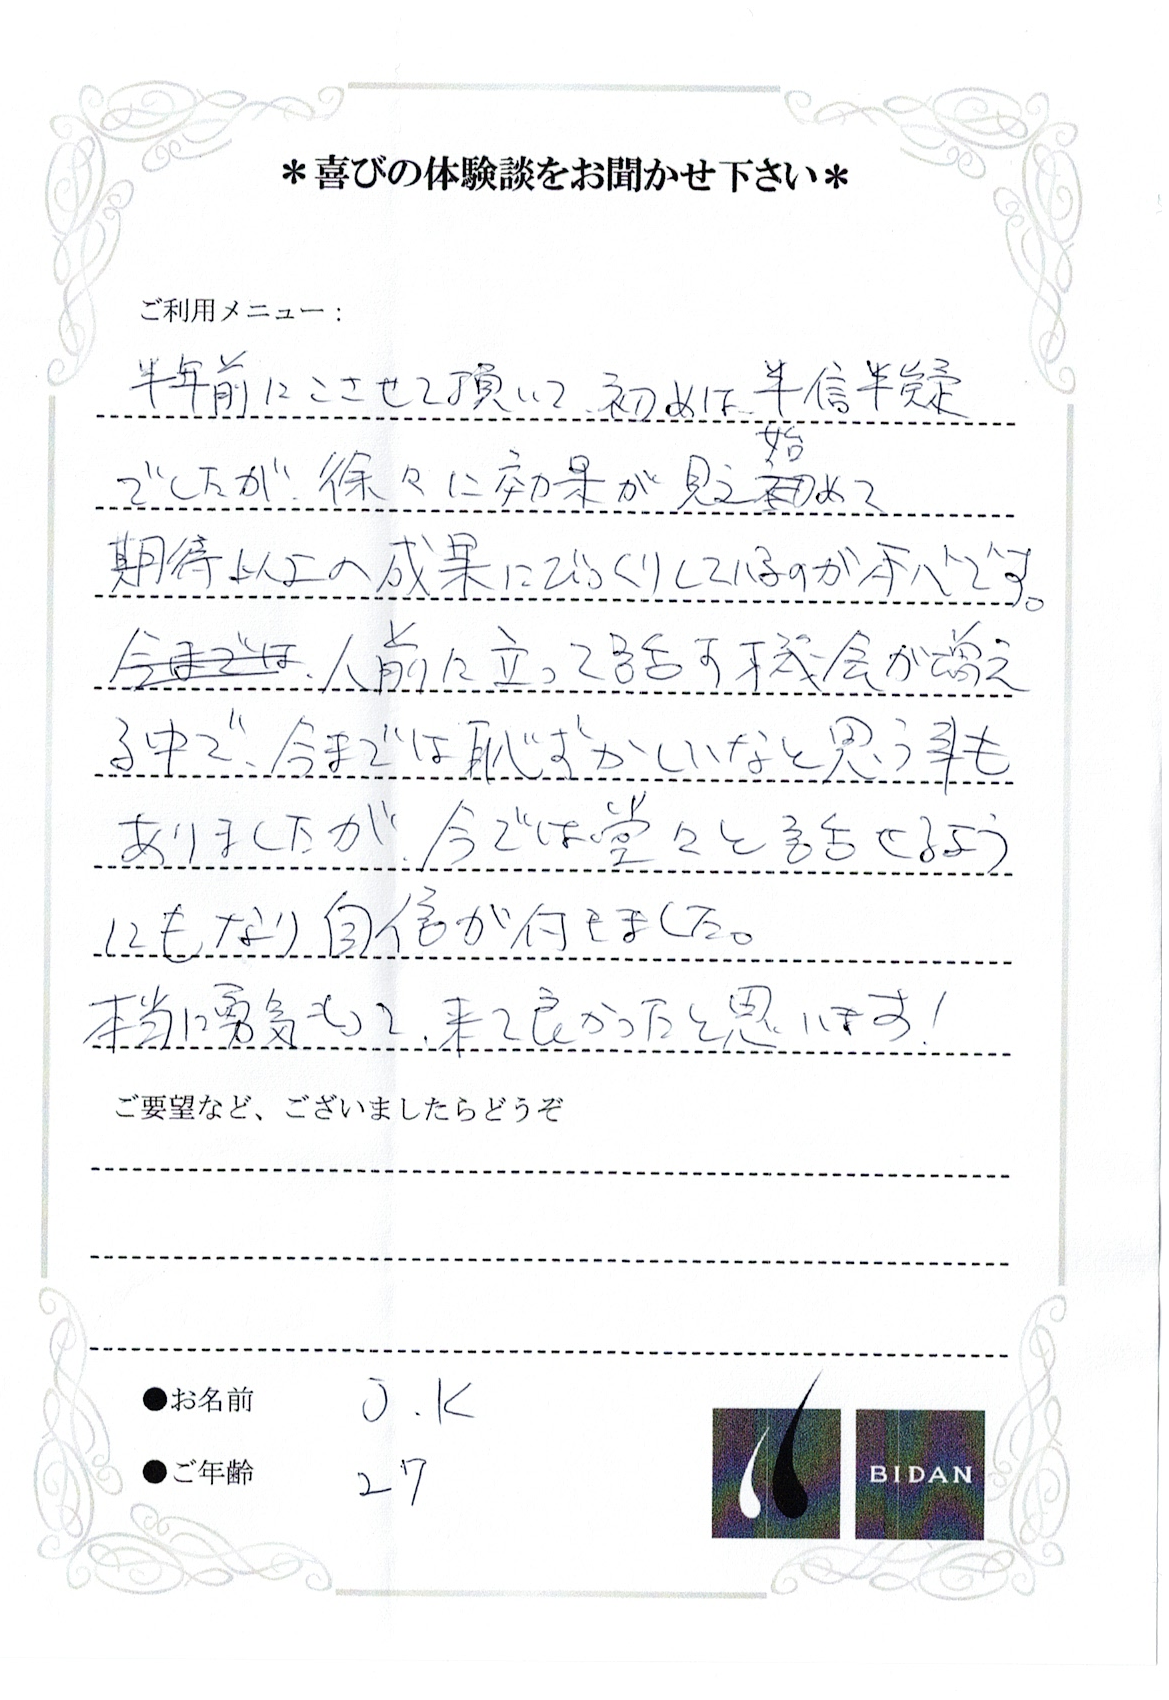 ＊喜びの体験談をお聞かせ下さい＊
ご利用メニュー：
半年前にこさせて頂いて、初めは、半信半疑
でしたが、徐々に効果が見え始めて
期待以上の成果にびっくりしているのが本心です。
今までは、人前に立って話す機会が増え
る中で、今までは恥ずかしいなと思う事も
ありましたが、今では堂々と話せるよう
にもなり自信が付きました。
本当に勇気もって、来て良かったと思います！
ご要望など、ございましたらどうぞ
●お名前 J.K
●ご年齢 27
BIDAN